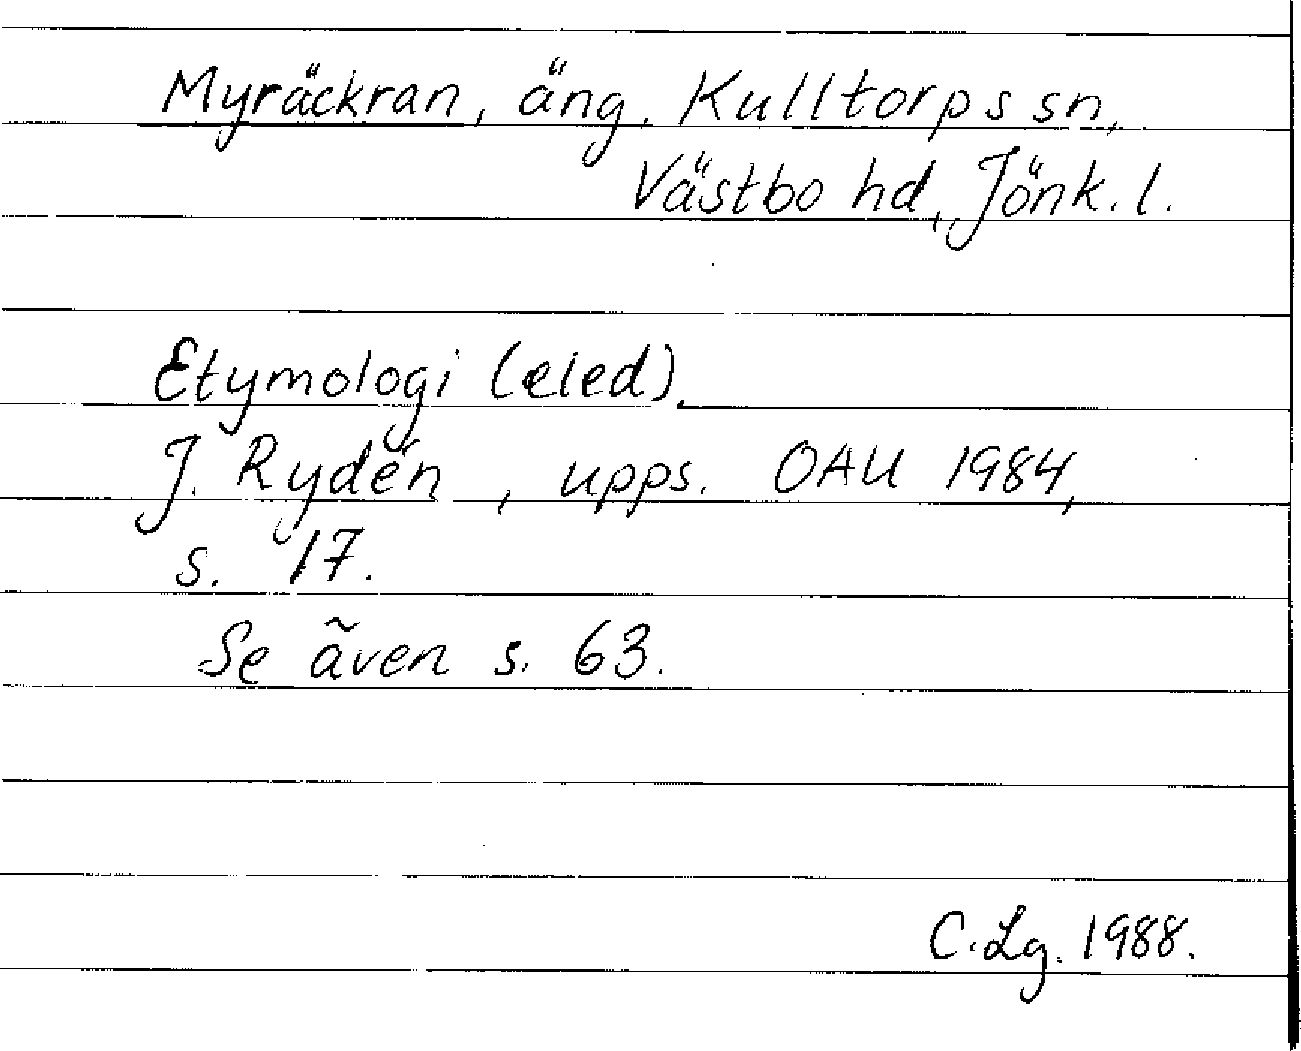 Myräckran, äng. Kulltorps sn,
Västbo hd, Jönk. l.
Etymologi (eled).
J. Rydén, upps. OAU 1984,
s. 17.
Se även s. 63.
C.Lg. 1988.